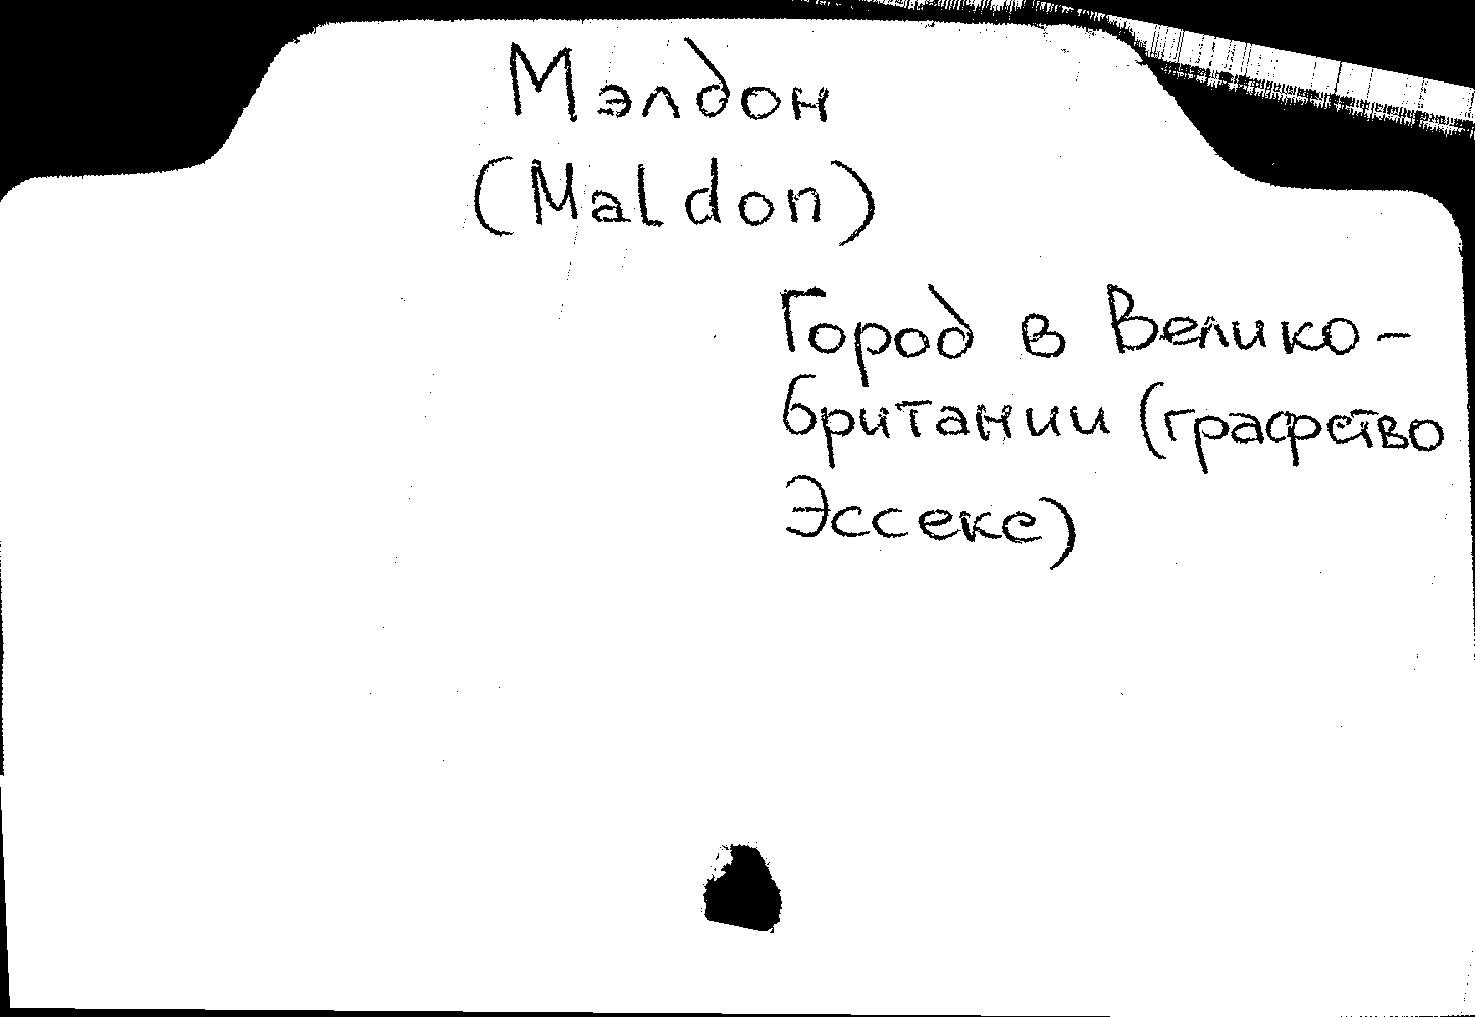 Мэлдон
(Maldon)
Город в Велико-
британии (графство
Эссекс)